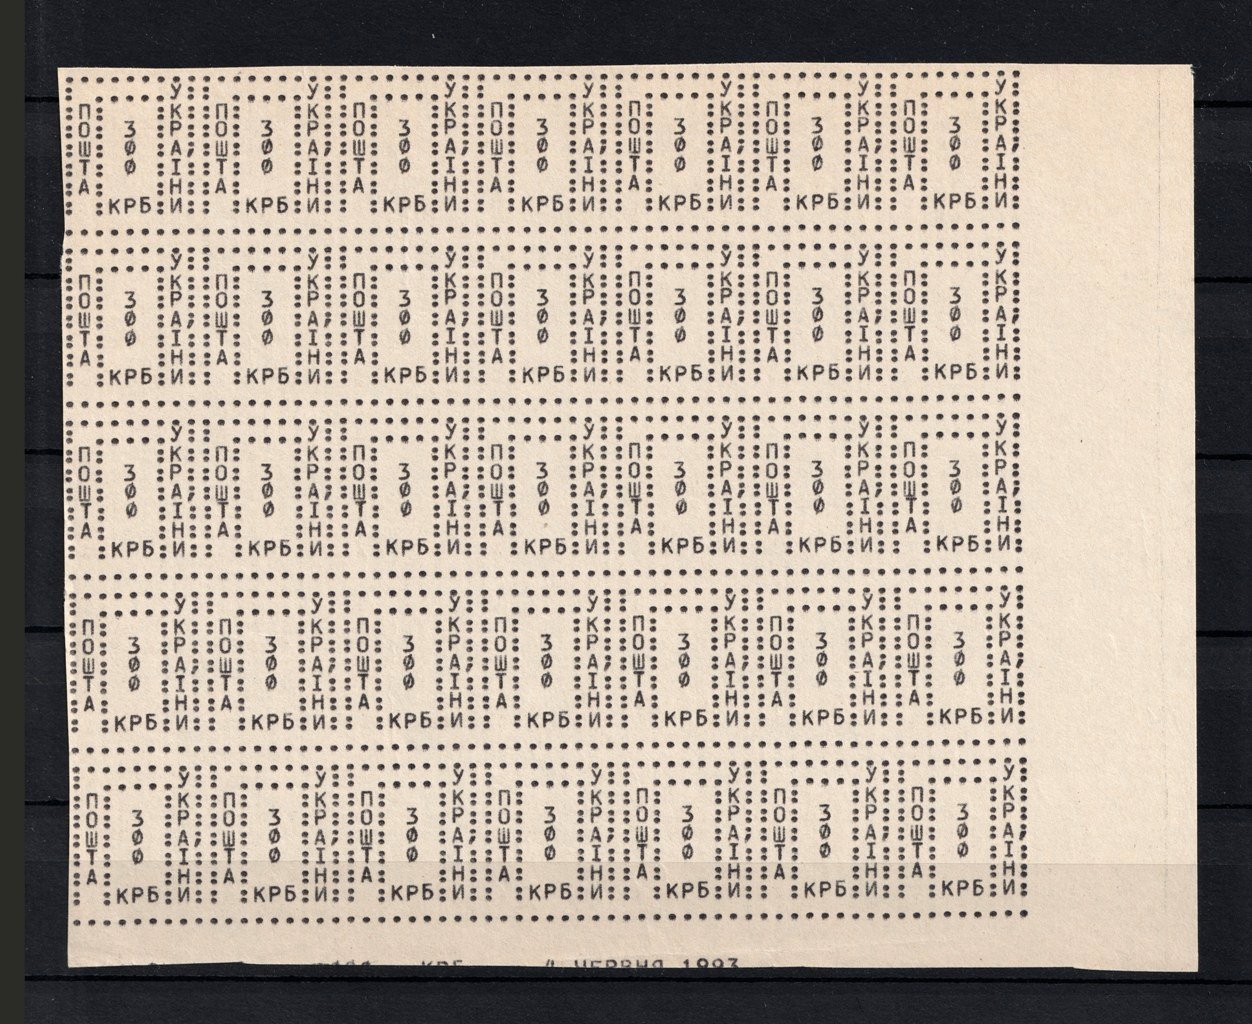 ПОШТА 300 КРБ УКРАІНИ ПОШТА 300 КРБ УКРАІНИ ПОШТА 300 КРБ УКРАІНИ ПОШТА 300 КРБ УКРАІНИ ПОШТА 300 КРБ УКРАІНИ ПОШТА 300 КРБ УКРАІНИ ПОШТА 300 КРБ УКРАІНИ
ПОШТА 300 КРБ УКРАІНИ ПОШТА 300 КРБ УКРАІНИ ПОШТА 300 КРБ УКРАІНИ ПОШТА 300 КРБ УКРАІНИ ПОШТА 300 КРБ УКРАІНИ ПОШТА 300 КРБ УКРАІНИ ПОШТА 300 КРБ УКРАІНИ
ПОШТА 300 КРБ УКРАІНИ ПОШТА 300 КРБ УКРАІНИ ПОШТА 300 КРБ УКРАІНИ ПОШТА 300 КРБ УКРАІНИ ПОШТА 300 КРБ УКРАІНИ ПОШТА 300 КРБ УКРАІНИ ПОШТА 300 КРБ УКРАІНИ
ПОШТА 300 КРБ УКРАІНИ ПОШТА 300 КРБ УКРАІНИ ПОШТА 300 КРБ УКРАІНИ ПОШТА 300 КРБ УКРАІНИ ПОШТА 300 КРБ УКРАІНИ ПОШТА 300 КРБ УКРАІНИ ПОШТА 300 КРБ УКРАІНИ
ПОШТА 300 КРБ УКРАІНИ ПОШТА 300 КРБ УКРАІНИ ПОШТА 300 КРБ УКРАІНИ ПОШТА 300 КРБ УКРАІНИ ПОШТА 300 КРБ УКРАІНИ ПОШТА 300 КРБ УКРАІНИ ПОШТА 300 КРБ УКРАІНИ
КРБ 4 ЧЕРВНЯ 1993